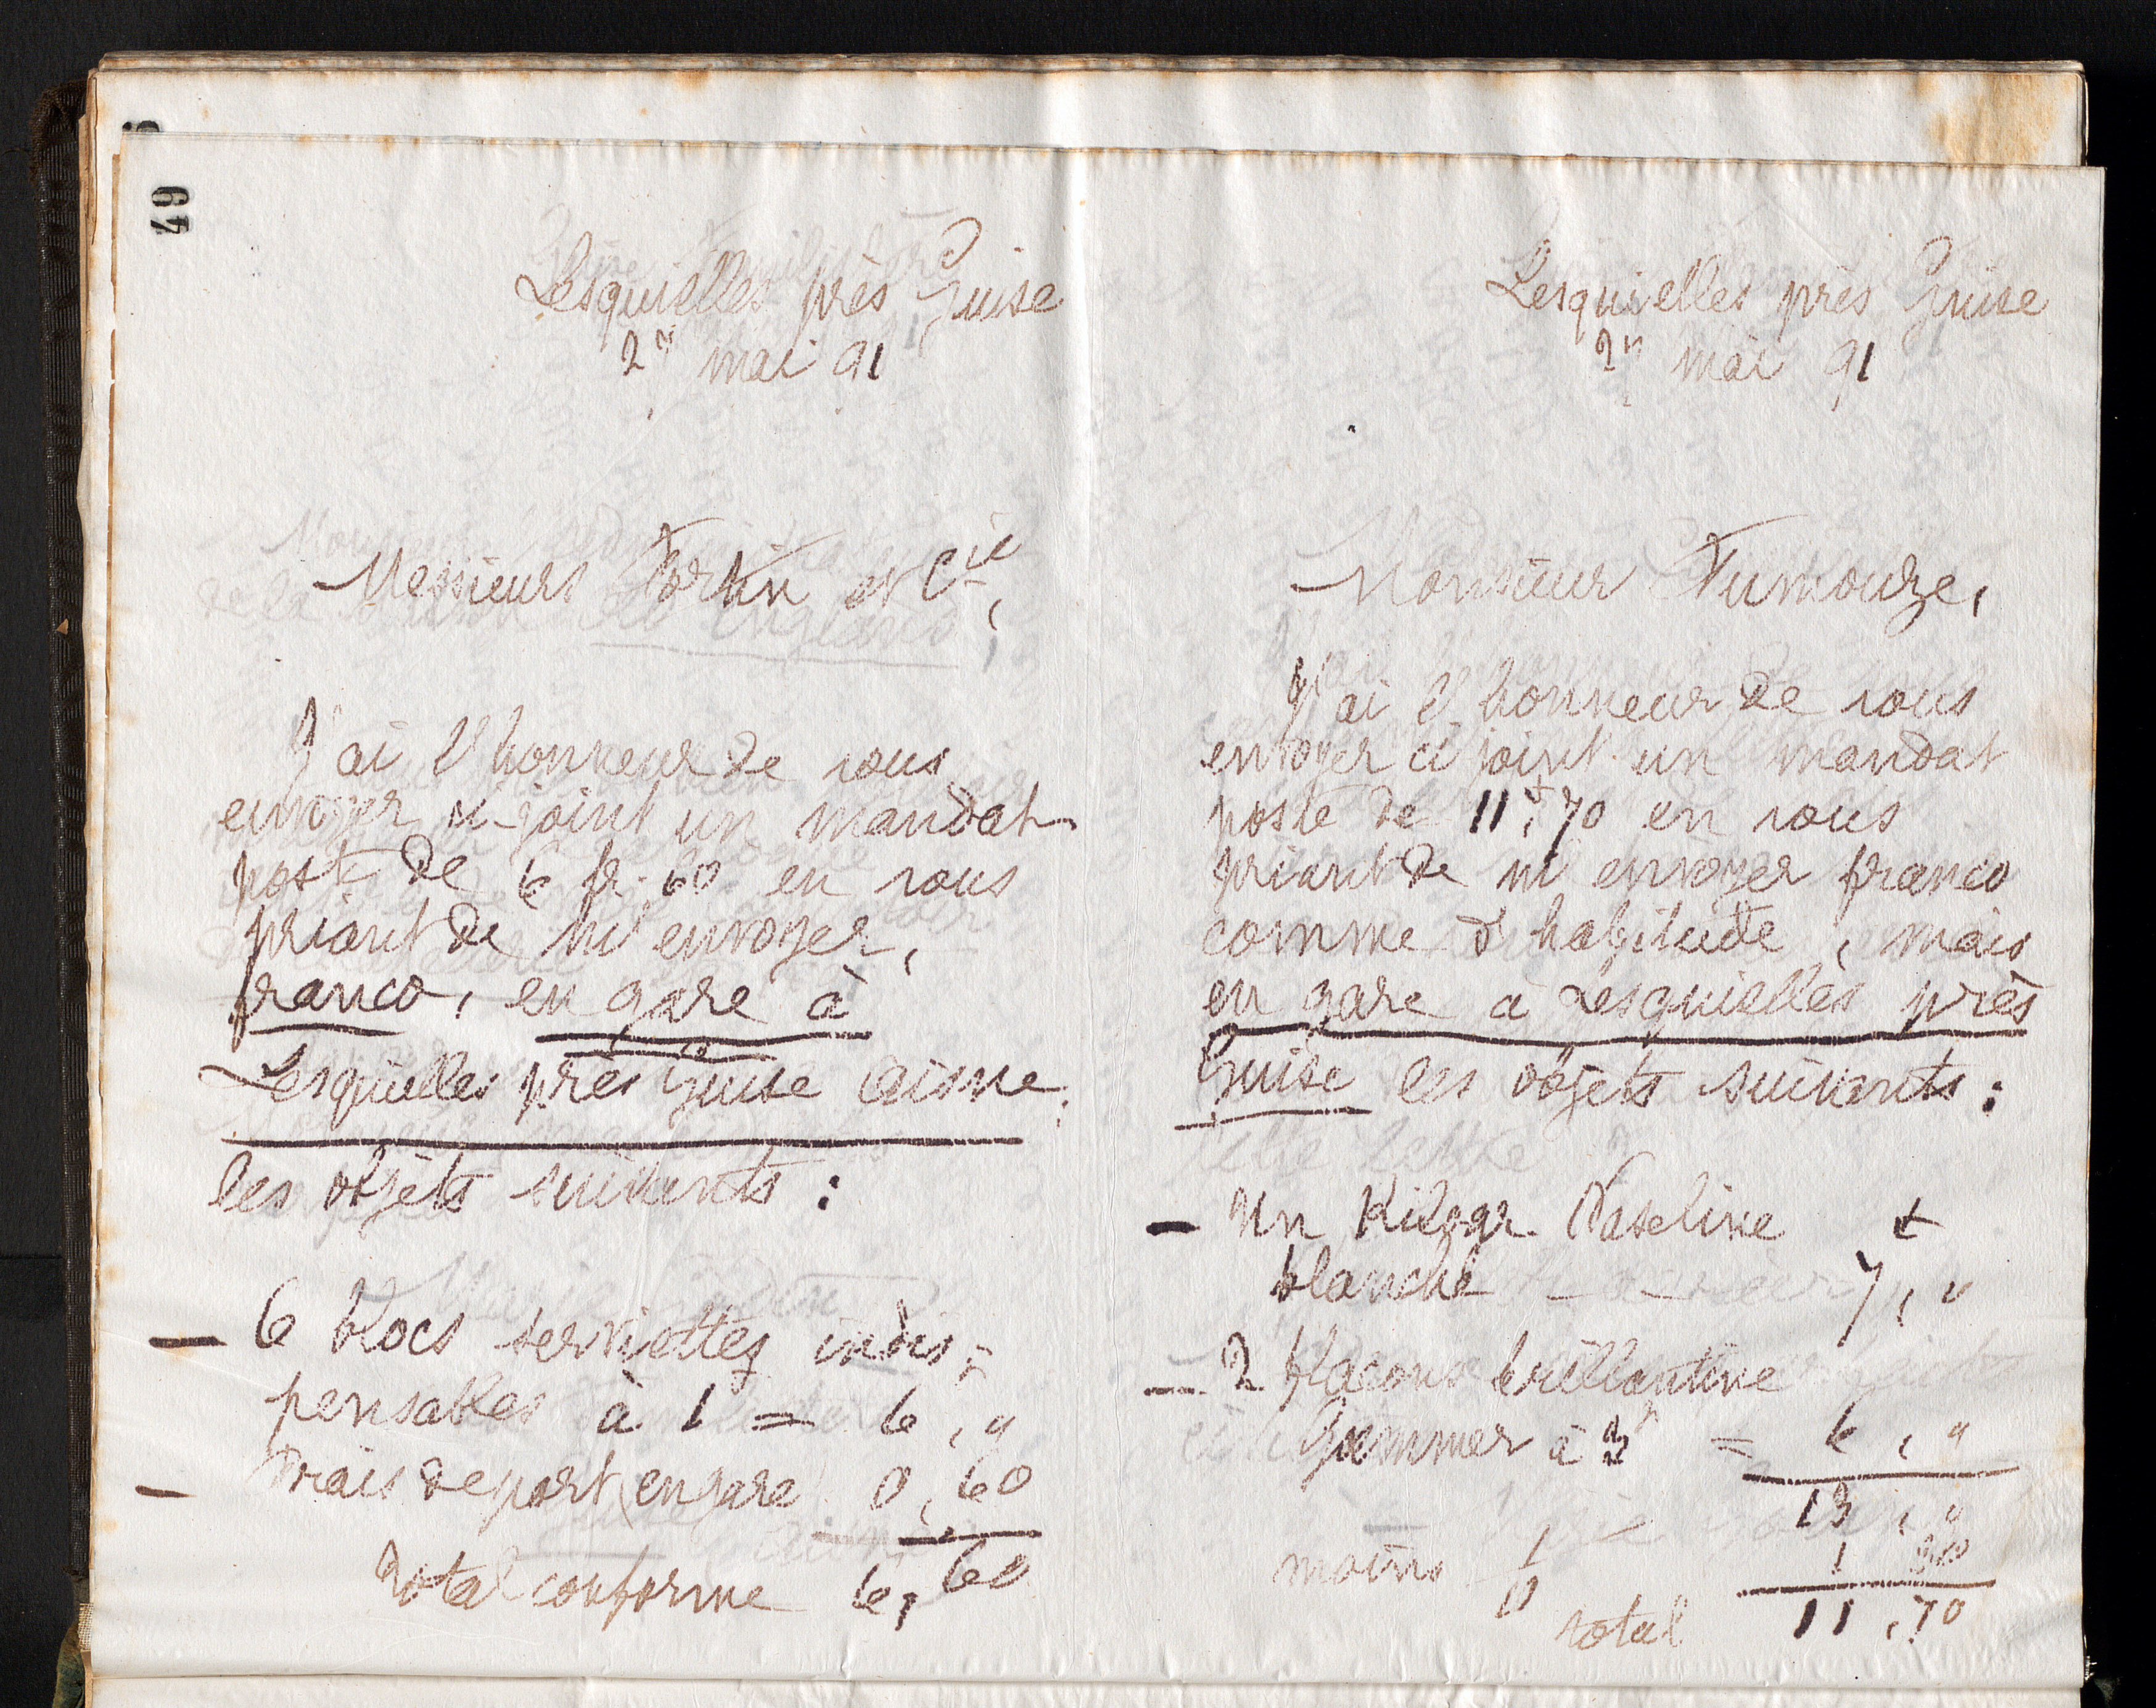 49
Lesquielles près Guise
2 mai 91
Messieurs Fortin et Cie,
J'ai l'honneur de vous
envoyer ci-joint un mandat
poste de 6 fr. 60 en vous
priant de m'envoyer,
franco, en gare à
Lesquielles près Guise Aisne,
les objets suivants :
— 6 blocs serviettes indis-
pensables à 1 = 6, "
— Frais de port, en gare 0,60
Total conforme 6,60
Lesquielles près Guise
2 mai 91
Monsieur Fumouze,
J'ai l'honneur de vous
envoyer ci joint un mandat
poste de 11f,70 en vous
priant de m'envoyer franco
comme d'habitude, mais
en gare à Lesquielles près
Guise les objets suivants :
— Un Kilogr. Vaseline f
blanche 7, "
— 2 flacons brillantine
à 3f = 6, "
13, "
moins 1/10 1 30
total 11,70